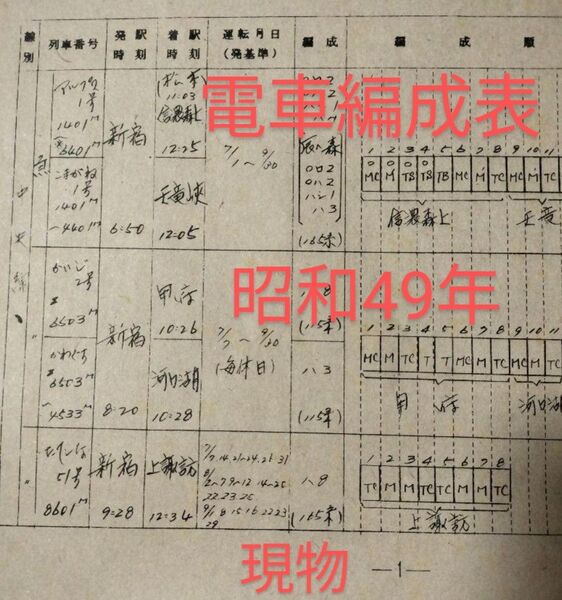 線別
列車番号
発駅
時刻
着駅
時刻
運転月日
(発基準)
編成
編成順
電車編成表
急
中央線
アルプス
1号
1401M
6401M
こまがね
1号
1401M
～4401M
新宿
6:50
(松本)
11:03
信濃森上
12:25
天竜峡
12:05
7/1～9/30
ロロ2
ロハ2
ハシ1
ハ3
(165系)
1 2 3 4 5 6 7 8 9 10 11
MC M TB TB TB M TC MC M TC
信濃森上
天竜
昭和49年
かいじ
2号
6503M
かわぐち
6503M
～4533M
新宿
8:20
甲府
10:26
河口湖
10:28
7/7～9/30
(毎休日)
ハ8
(115系)
ハ3
(115系)
1 2 3 4 5 6 7 8 9 10 11
MC M TC T T MC M TC MC M TC
甲府
河口湖
51号
8601M
新宿
9:28
上諏訪
12:34
ハ8
(165系)
1 2 3 4 5 6 7 8
TC M M TC TC M M TC
上諏訪
現物
—1—